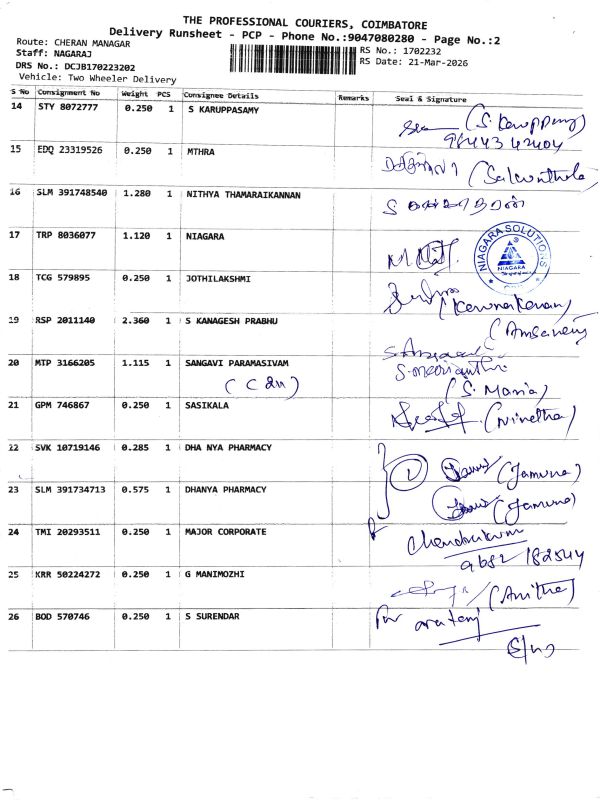 THE PROFESSIONAL COURIERS, COIMBATORE
Delivery Runsheet - PCP - Phone No.:9047080280 - Page No.:2
Route: CHERAN MANAGAR
Staff: NAGARAJ RS No.: 1702232
DRS No.: DCJB170223202 RS Date: 21-Mar-2026
Vehicle: Two Wheeler Delivery
S No Consignment No Weight PCS Consignee Details Remarks Seal & Signature
14 STY 8072777 0.250 1 S KARUPPASAMY
98443 42404
15 EDQ 23319526 0.250 1 MTHRA (Sakunthala)
16 SLM 391748540 1.280 1 NITHYA THAMARAIKANNAN
17 TRP 8036077 1.120 1 NIAGARA
NIAGARA SOLUTIONS
NIAGARA
18 TCG 579895 0.250 1 JOTHILAKSHMI
(Karunakaran)
19 RSP 2011140 2.360 1 S KANAGESH PRABHU
20 MTP 3166205 1.115 1 SANGAVI PARAMASIVAM
(S. Maria)
21 GPM 746867 0.250 1 SASIKALA (Nivetha)
22 SVK 10719146 0.285 1 DHA NYA PHARMACY (Jamuna)
23 SLM 391734713 0.575 1 DHANYA PHARMACY (Jamuna)
24 TMI 20293511 0.250 1 MAJOR CORPORATE
25 KRR 50224272 0.250 1 G MANIMOZHI (Anitha)
26 BOD 570746 0.250 1 S SURENDAR